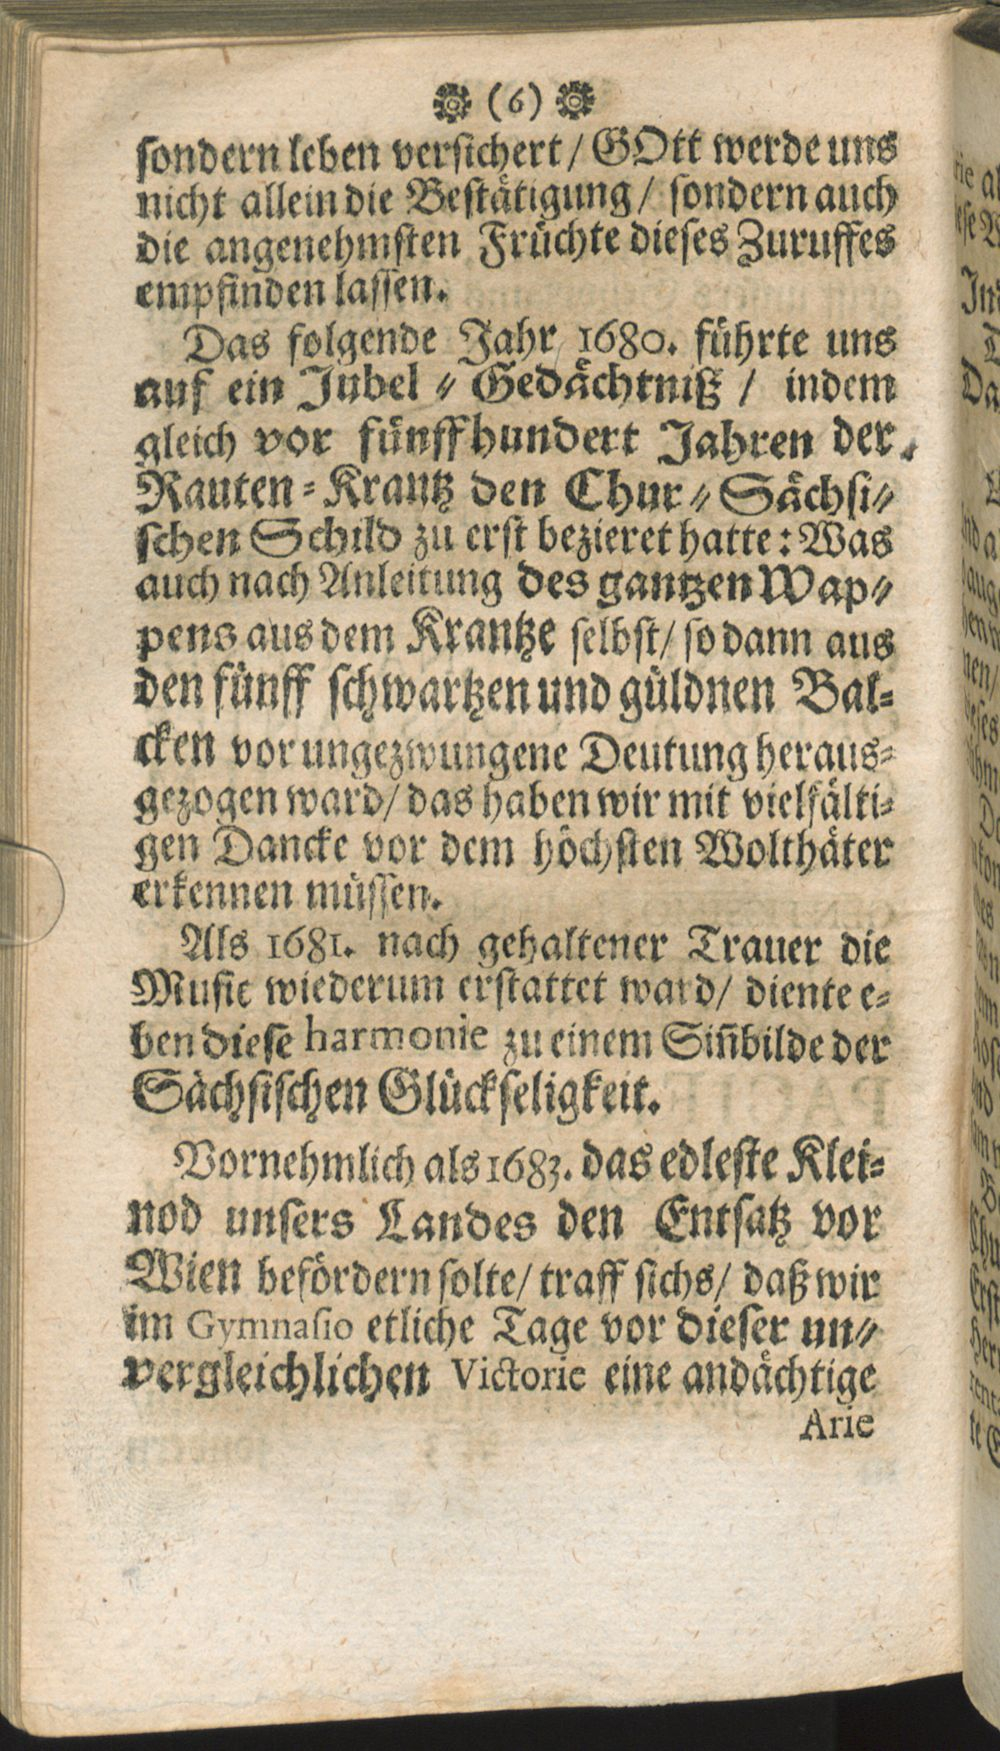 (6)
sondern leben versichert / GOtt werde uns
nicht allein die Bestätigung / sondern auch
die angenehmsten Früchte dieses Zuruffes
empfinden lassen.
Das folgende Jahr 1680. führte uns
auf ein Jubel-Gedächtniß / indem
gleich vor fünffhundert Jahren der
Rauten-Krantz den Chur-Sächsi-
schen Schild zu erst bezieret hatte: Was
auch nach Anleitung des gantzen Wap-
pens aus dem Krantze selbst / so dann aus
den fünff schwartzen und güldnen Bal-
cken vor ungezwungene Deutung heraus-
gezogen ward / das haben wir mit vielfälti-
gen Dancke vor dem höchsten Wolthäter
erkennen müssen.
Als 1681. nach gehaltener Trauer die
Music wiederum erstattet ward / diente e-
ben diese harmonie zu einem Siñbilde der
Sächsischen Glückseligkeit.
Vornehmlich als 1683. das edleste Klei-
nod unsers Landes den Entsatz vor
Wien befördern solte / traff sichs / daß wir
im Gymnasio etliche Tage vor dieser un-
vergleichlichen Victorie eine andächtige
Arie